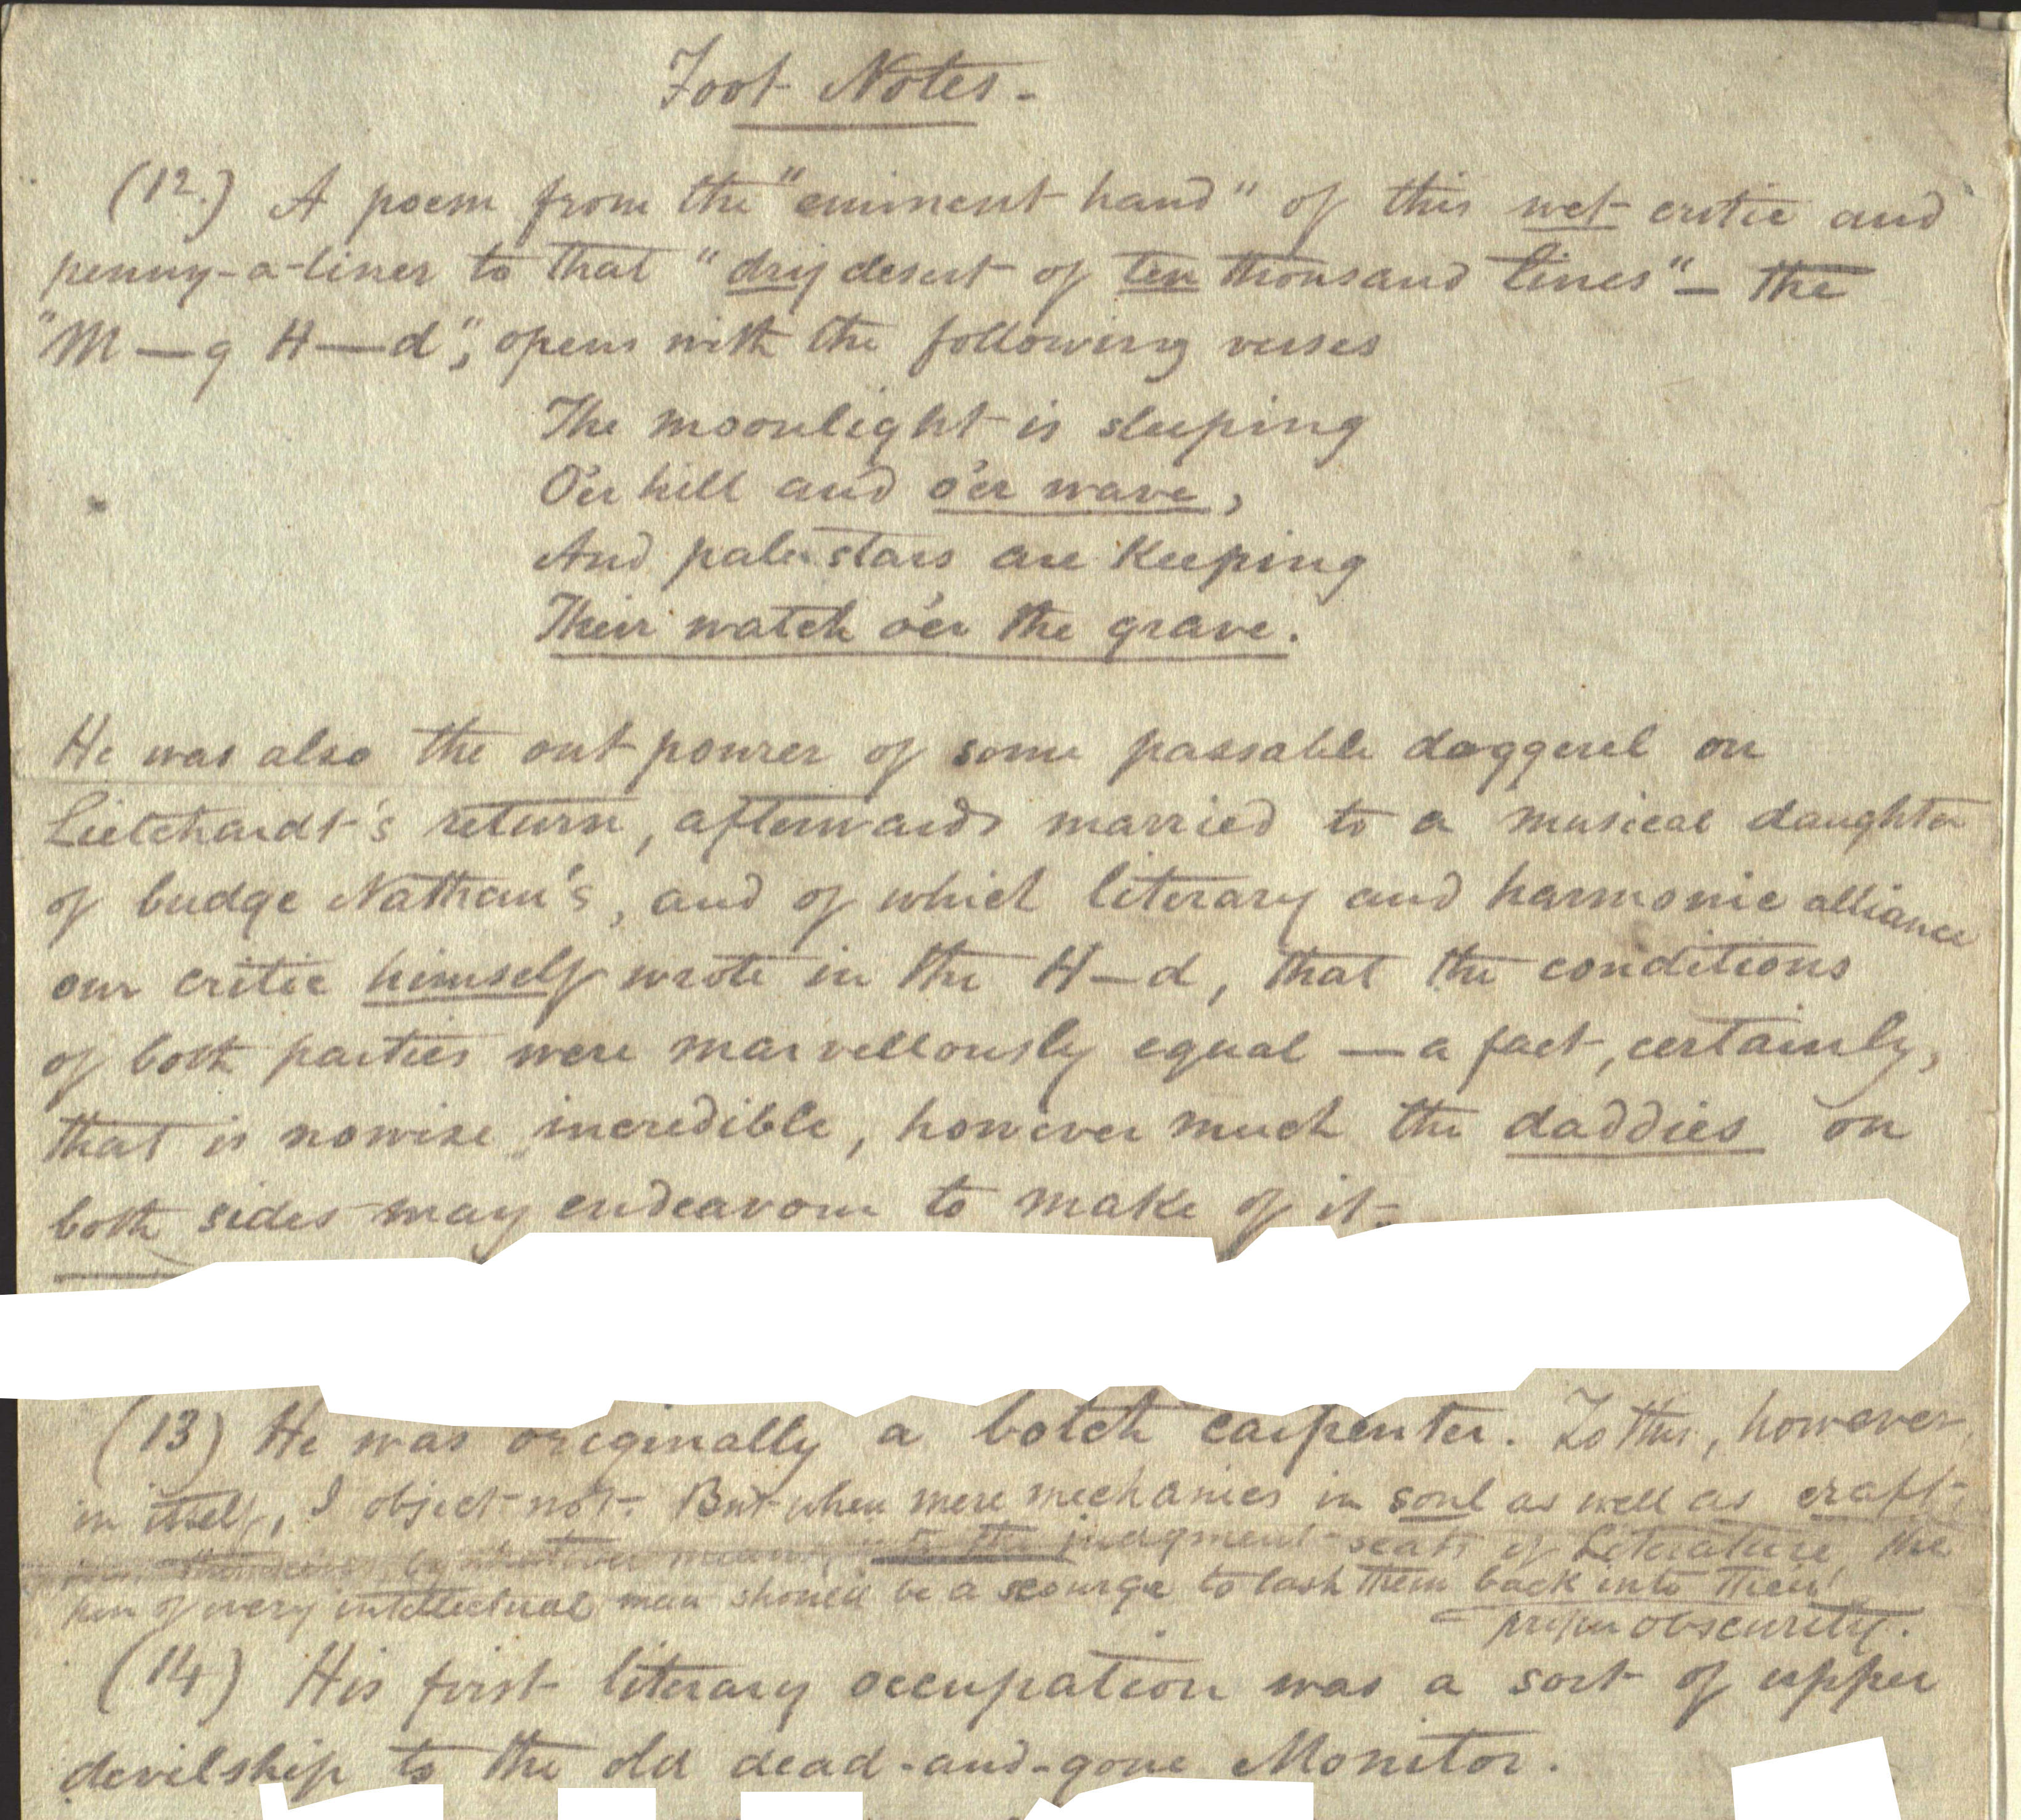 Foot Notes.
(12.) A poem from the "eminent hand" of this wet critic and
penny-a-liner to that "dry desert of ten thousand lines" — the
"M—g H—d", opens with the following verses
The moonlight is sleeping
O'er hill and o'er wave,
And pale stars are keeping
Their watch o'er the grave.
He was also the out pourer of some passable doggerel on
Lietchardt's return, afterwards married to a musical daughter
of budge Nathan's, and of which literary and harmonic alliance
our critic himself wrote in the H—d, that the conditions
of both parties were marvellously equal — a fact, certainly,
that is nowise incredible, however much the daddies on
both sides may endeavour to make of it.
(13) He was originally a botch carpenter. To this, however,
in itself, I object not. But when mere mechanics in soul as well as craft,
by whatever means, to the judgment-seats of Literature, the
pen of every intellectual man should be a scourge to lash them back into their
proper obscurity.
(14.) His first literary occupation was a sort of upper
devilship to the old dead-and-gone Monitor.